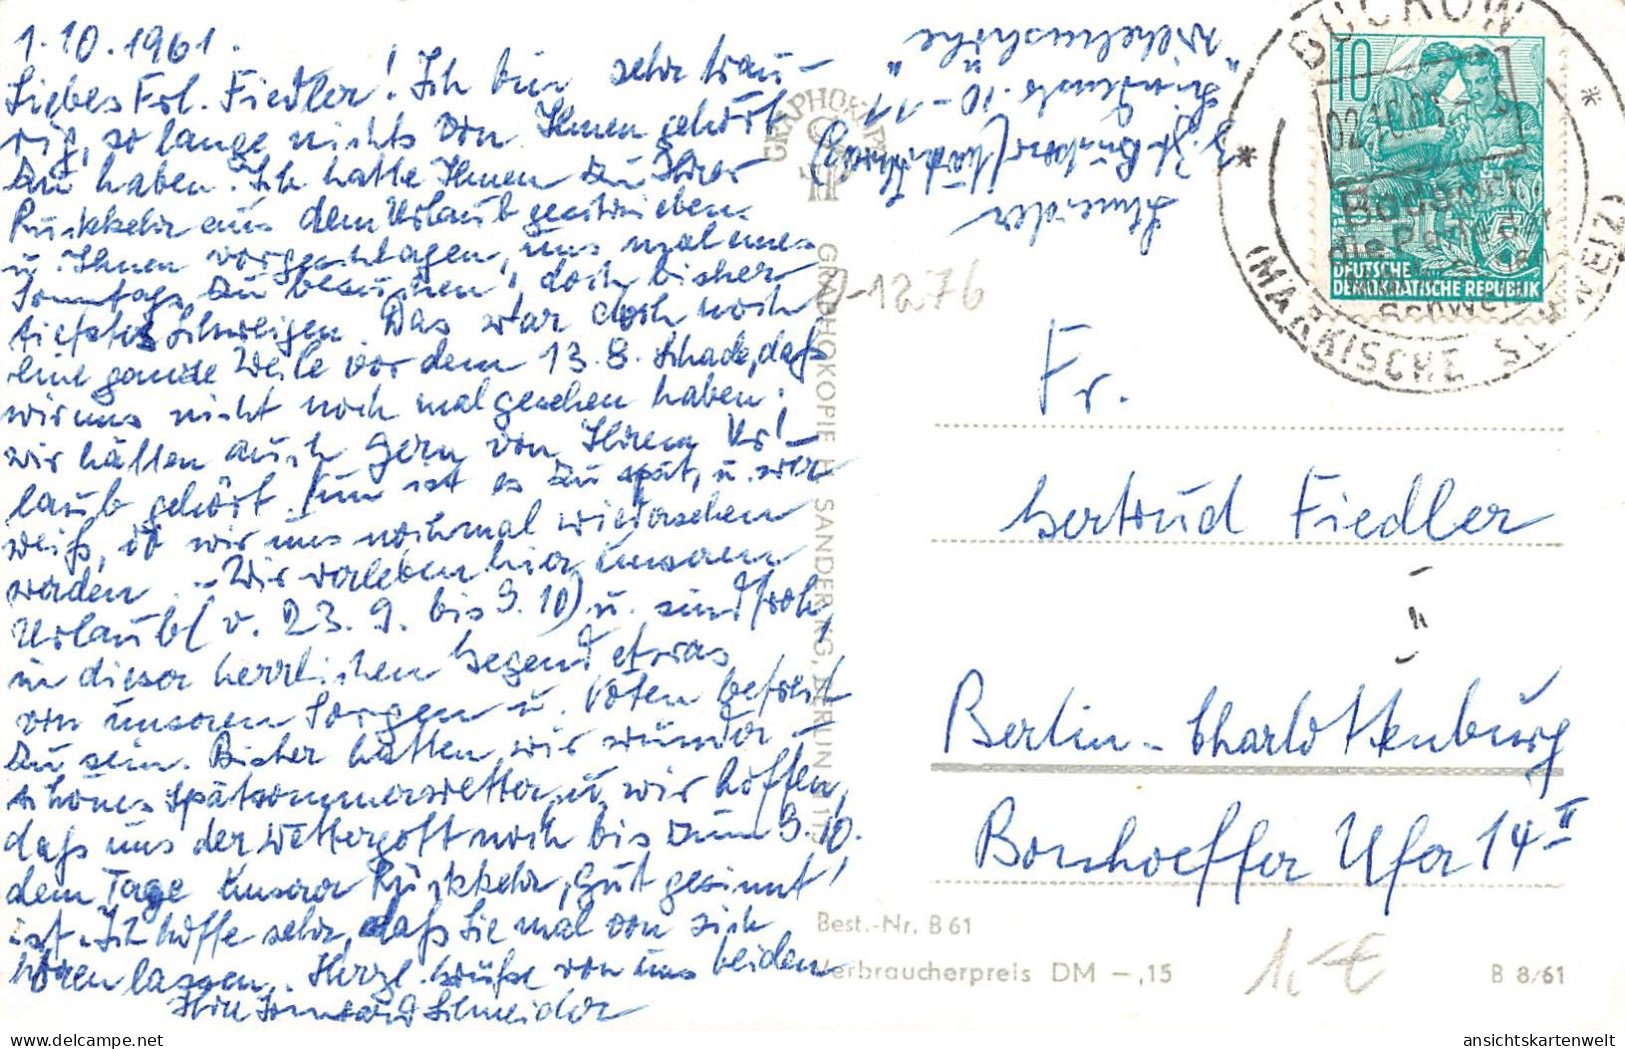 1.10.1961.
Liebes Frl. Fiedler! Ich bin sehr trau-
rig, so lange nichts von Ihnen gehört
zu haben. Ich hatte Ihnen zu Ihrer
Rückkehr aus dem Urlaub geschrieben
u. Ihnen vorgeschlagen, uns mal eines
Sonntags zu besuchen, doch bisher
tiefstes Schweigen. Das war doch noch
eine ganze Weile vor dem 13.8. Schade, daß
wir uns nicht noch mal gesehen haben;
wir hätten auch gern von Ihrem Ur-
laub gehört. Nun ist es zu spät, u. wer
weiß, ob wir uns nochmal wiedersehen
werden. - Wir verleben hier unseren
Urlaub (v. 23.9. bis 3.10) u. sind froh,
in dieser herrlichen Gegend etwas
von unseren Sorgen u. Nöten befreit
zu sein. Bisher hatten wir wunder-
schönes Spätsommerwetter, u. wir hoffen,
daß uns der Wettergott noch bis zum 3.10.
dem Tage unserer Rückkehr, gut gesinnt
ist. Ich hoffe sehr, daß Sie mal von sich
hören lassen. Herzl. Grüße von uns beiden
Ihre Irmgard Schneider
Schneider
z. Zt. Buckow (Märk. Schweiz)
Lindenstr. 10-11
"Wilhelmshöhe"
GRAPHOKOPIE H. SANDER KG, BERLIN
BUCKOW
(MÄRKISCHE SCHWEIZ)
10
DEUTSCHE
DEMOKRATISCHE REPUBLIK
9-1276
Fr.
Gertrud Fiedler
Berlin-Charlottenburg
Bonhoeffer Ufer 14 II
Best.-Nr. B 61
Verbraucherpreis DM -,15
1,- €
B 8/61
ansichtskartenwelt